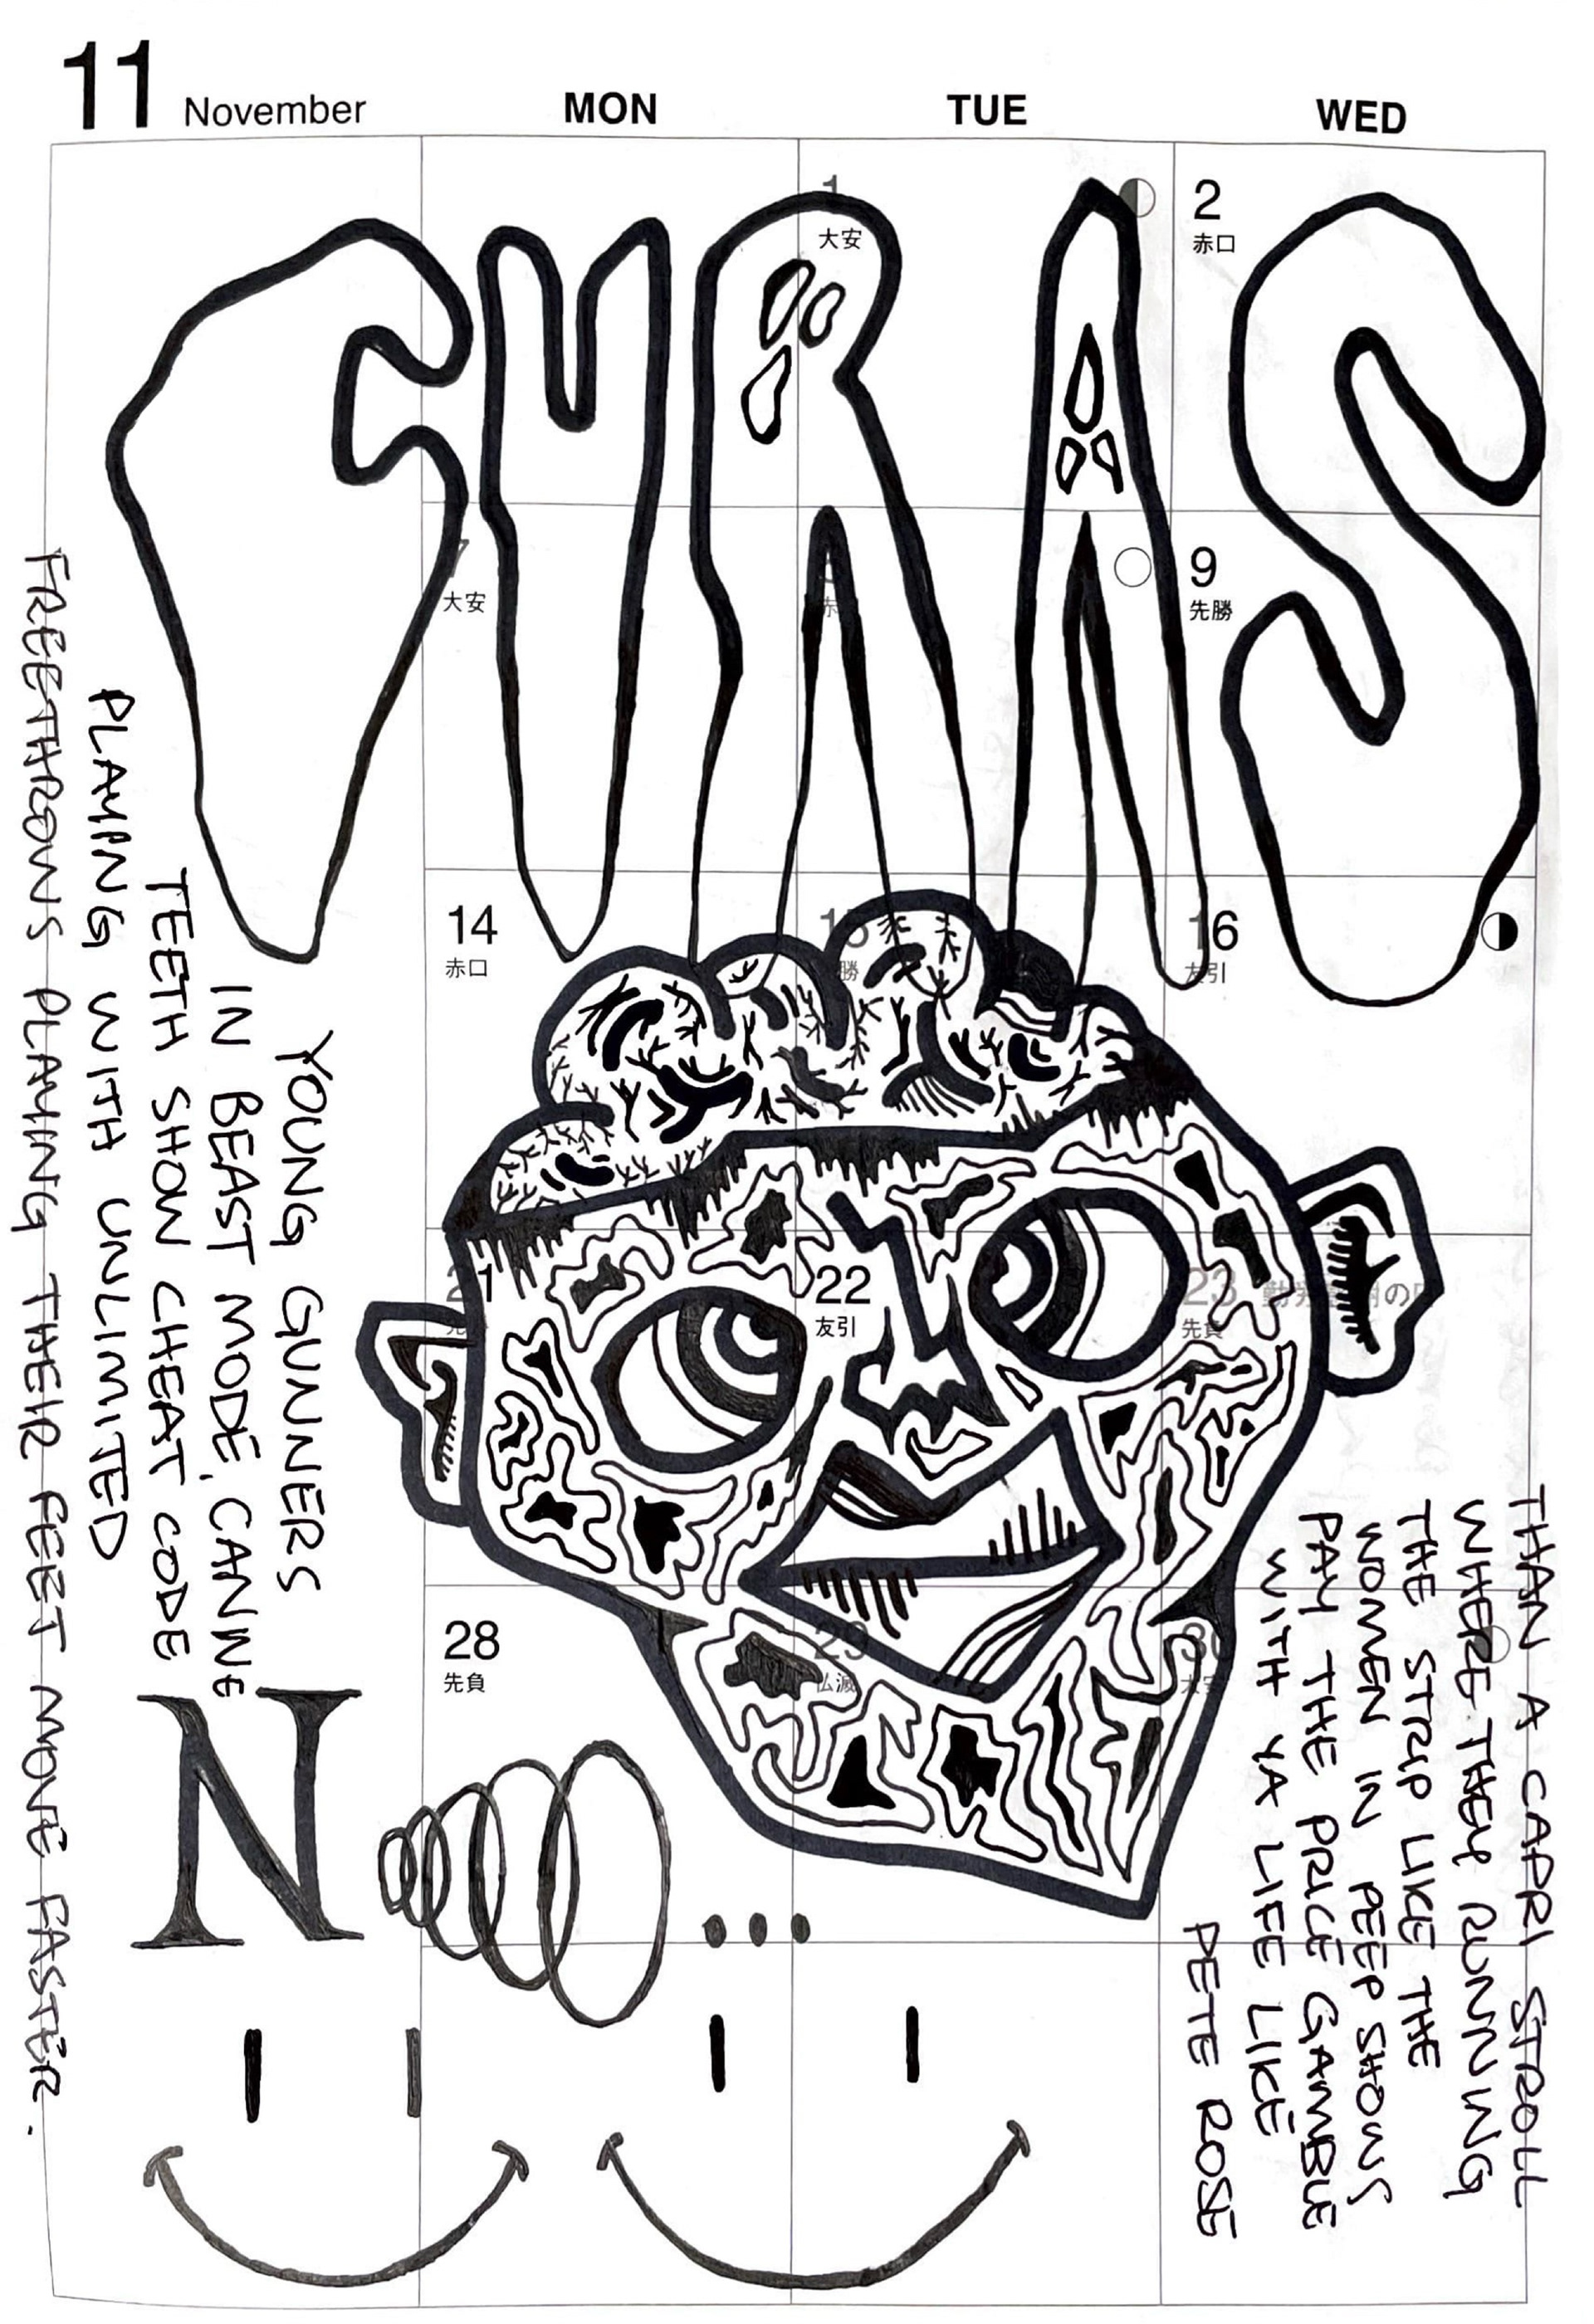 11 November
MON TUE WED
1
大安
2
赤口
FYRAS
7
大安
9
先勝
14
赤口
15
16
友引
21
22
友引
23
先負
28
先負
29
仏滅
30
YOUNG GUNNERS
IN BEAST MODE, CANINE
TEETH SHOW CHEAT CODE
PLAYING WITH UNLIMITED
FREETHROWS PLAYING THEIR FEET MOVE FASTER.
THAN A CAPRI STROLL
WHERE THEY RUNNING
THE STRIP LIKE THE
WOMEN IN PEEP SHOWS
PAY THE PRICE GAMBLE
WITH YA LIFE LIKE
PETE ROSE
N
...